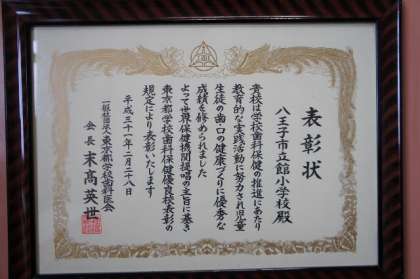 表彰状
八王子市立館小学校殿
貴校は学校歯科保健の推進にあたり
教育的な実践活動に努力され児童
生徒の歯・口の健康づくりに優秀な
成績を修められました
よって世界保健機関提唱の主旨に基き
東京都学校歯科保健優良校表彰の
規定により表彰いたします
平成三十一年二月二十八日
一般社団法人東京都学校歯科医会
会長 末髙英世